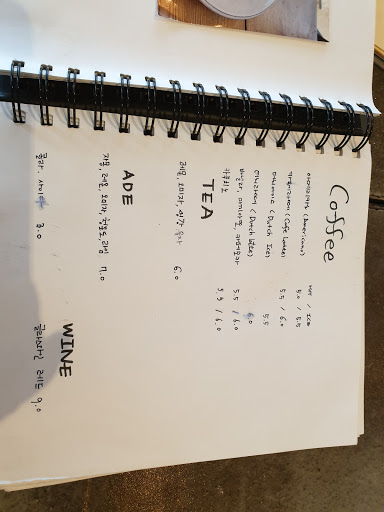 Coffee
HOT / ICE
아메리카노 (Americano) 5.0 / 5.5
카페라떼 (Cafe Latte) 5.5 / 6.0
더치아이스 (Dutch Ice) 5.5
더치라떼 (Dutch Latte) 6.0
바닐라, 5.5 / 6.0
카푸치노 5.5 / 6.0
TEA
레몬, 오미자, 생강, 유자 6.0
ADE
자몽, 레몬, 오미자, 청포도, 라임 7.0
콜라, 사이다 3.0
WINE
글라스와인 레드 9.0